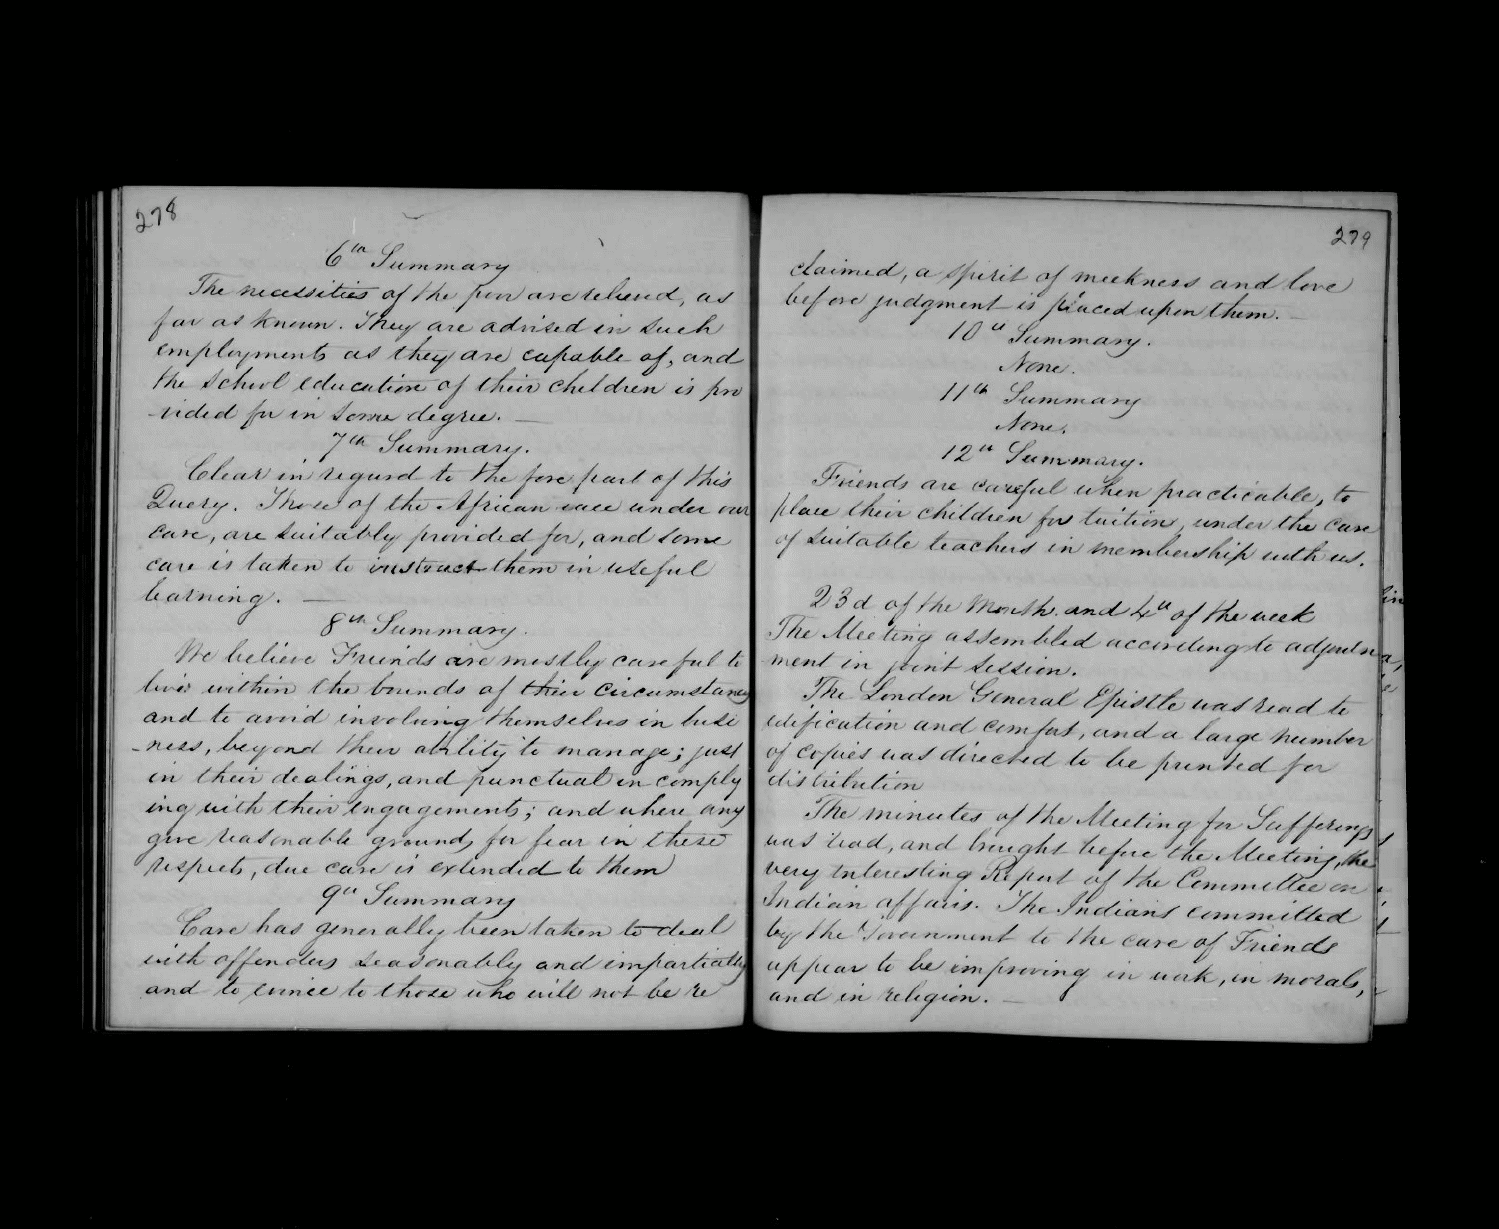 278
6th Summary
The necessities of the poor are relieved, as
far as known. They are advised in such
employments as they are capable of, and
the school education of their children is pro
-vided for in some degree. —
7th Summary.
Clear in regard to the fore part of this
Query. Those of the African race under our
care, are suitably provided for, and some
care is taken to instruct them in useful
learning. —
8th Summary.
We believe Friends are mostly careful to
live within the bounds of their circumstances
and to avoid involving themselves in busi
-ness, beyond their ability to manage; just
in their dealings, and punctual in comply
ing with their engagements; and where any
give reasonable grounds for fear in these
respects, due care is extended to them
9th Summary
Care has generally been taken to deal
with offenders seasonably and impartially
and to evince to those who will not be re
279
claimed, a spirit of meekness and love
before judgment is placed upon them. —
10th Summary.
None.
11th Summary
None.
12th Summary.
Friends are careful when practicable, to
place their children for tuition, under the care
of suitable teachers in membership with us.
23d of the Month and 4th of the week
The Meeting assembled according to adjourn
ment in joint session.
The London General Epistle was read to
edification and comfort, and a large number
of copies was directed to be printed for
distribution
The minutes of the Meeting for Sufferings
was read, and brought before the Meeting, the
very interesting Report of the Committee on
Indian affairs. The Indians committed
by the Government to the care of Friends
appear to be improving in work, in morals,
and in religion. —